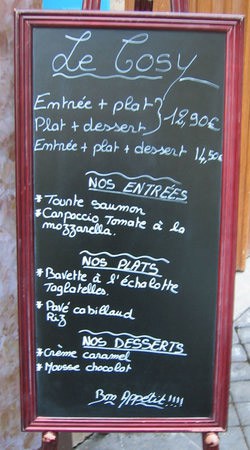 Le Cosy
Entrée + plat
Plat + dessert } 12,90€
Entrée + plat + dessert 14,50€
NOS ENTRÉES
* Tourte saumon
* Carpaccio Tomate à la
mozzarella.
NOS PLATS
* Bavette à l'échalotte
Tagliatelles.
* Pavé cabillaud
Riz
NOS DESSERTS
* Crème caramel
* Mousse chocolat
Bon Appétit !!!!